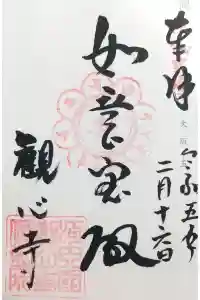 奉拝
令和五年
二月十六日
如意宝殿
観心寺